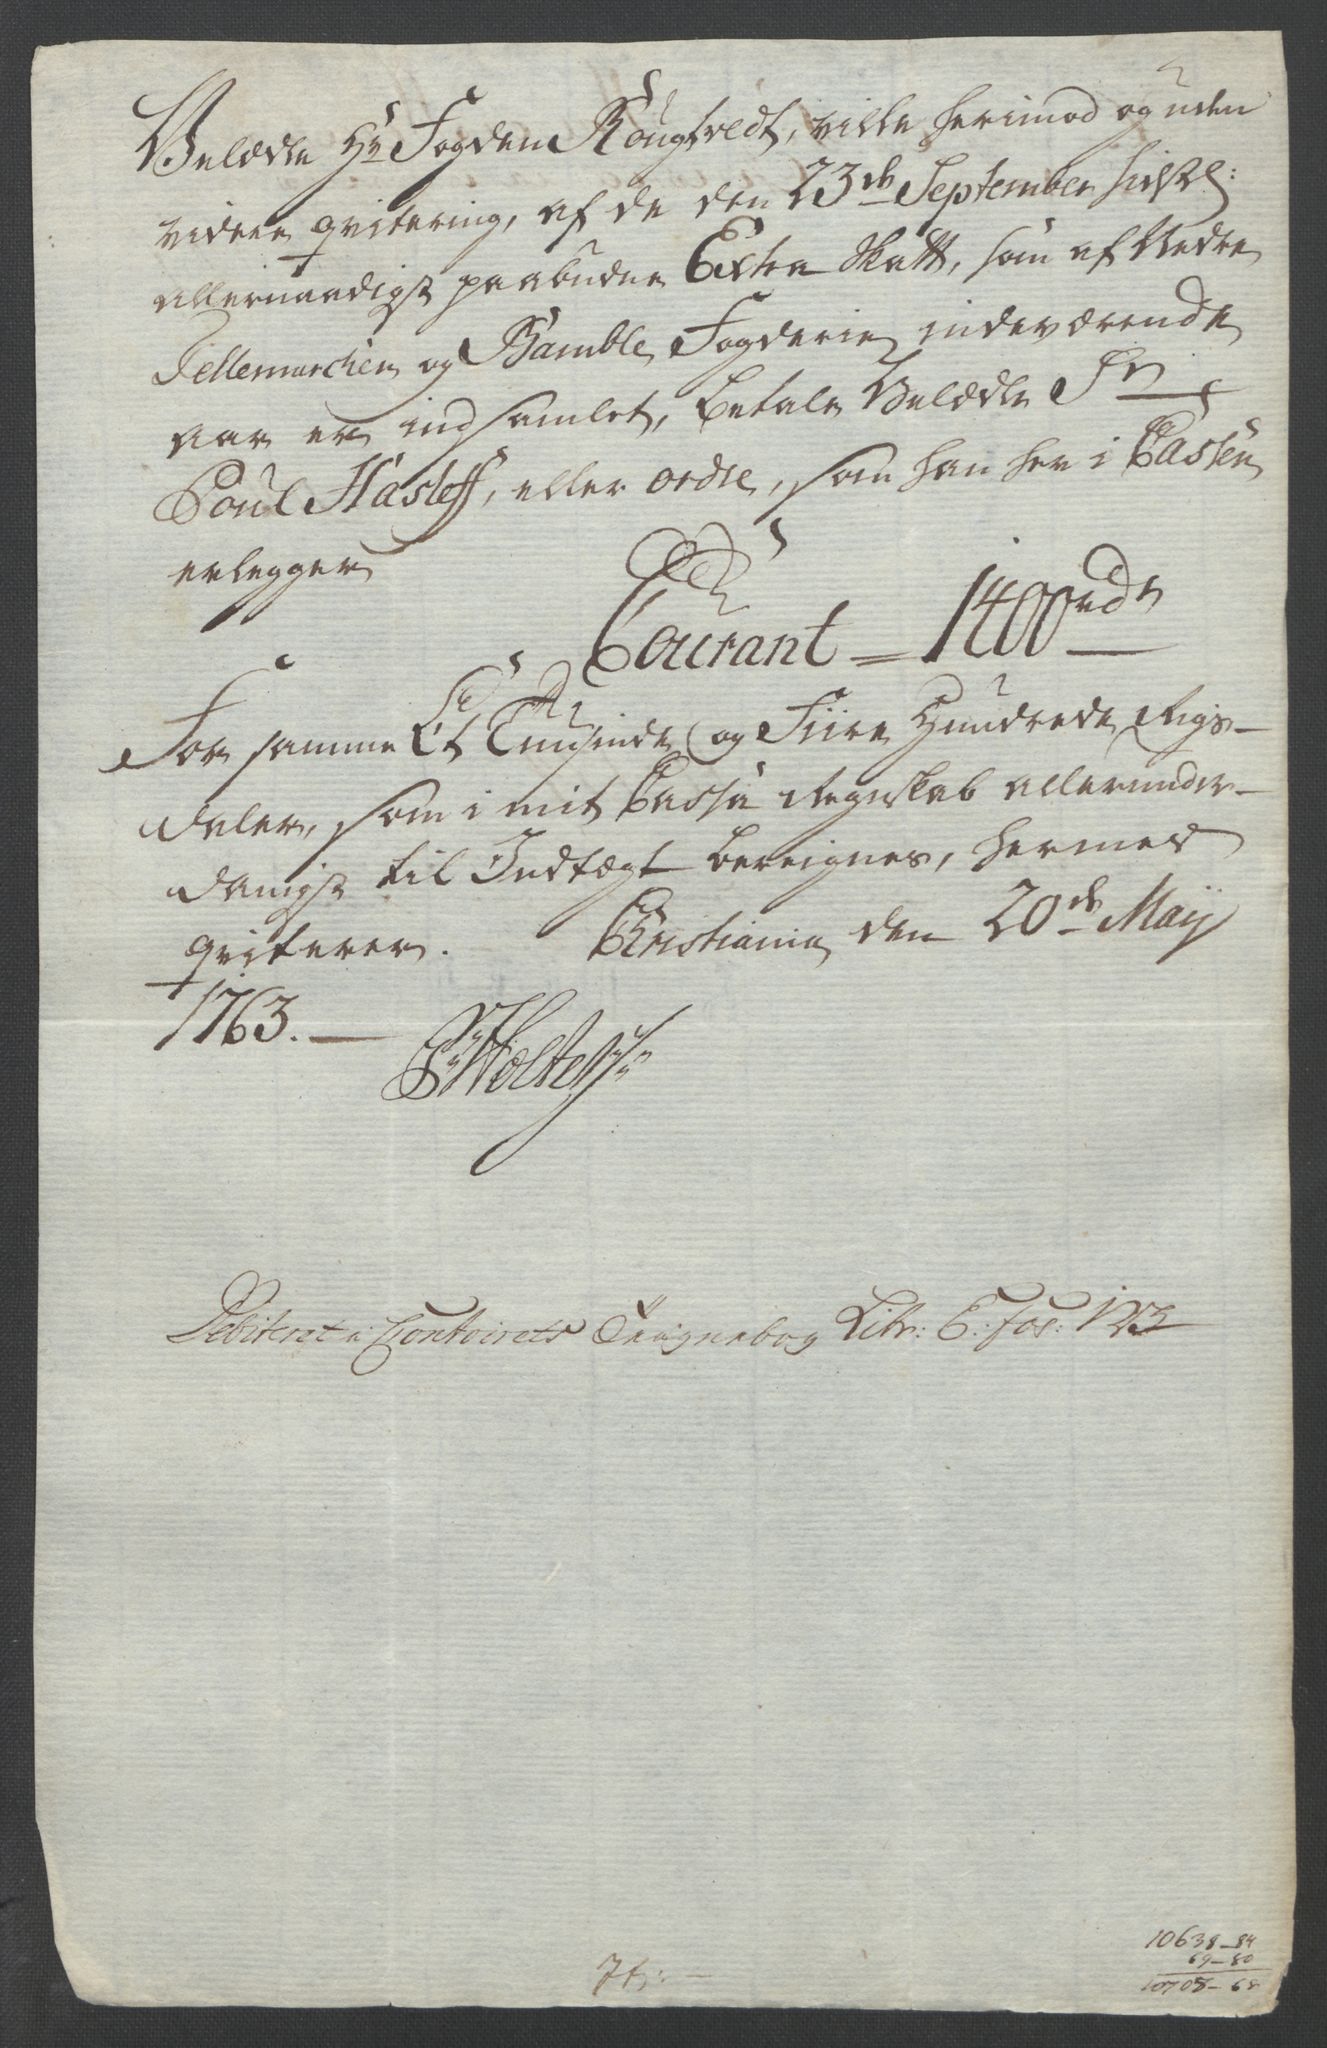 Velædle Hr Fogden Rougtvedt, ville herimod og uden
videre qvitering, af de den 23de September sidstl:
allernaadigst paabudne Extra Skatt, som af Nedre
Tellemarchen og Bamble Fogderie indeværende
aar er indsamlet, betale Velædle Sr
Poul Hasleff, eller ordre, som han her i Cassen
erlegger
Courant = 1400 rdr
For samme Et Tusinde og Fiire Hundrede Rigs-
daler, som i mit Casse Regnskab allerunder-
danigst til Indtægt bereignes, hermed
qviterer. Christiania den 20de Maij
1763.
Holte
Debiteret i Contoirets Bog Libr: E: Fol: 123
10638-84
69-80
10708-68